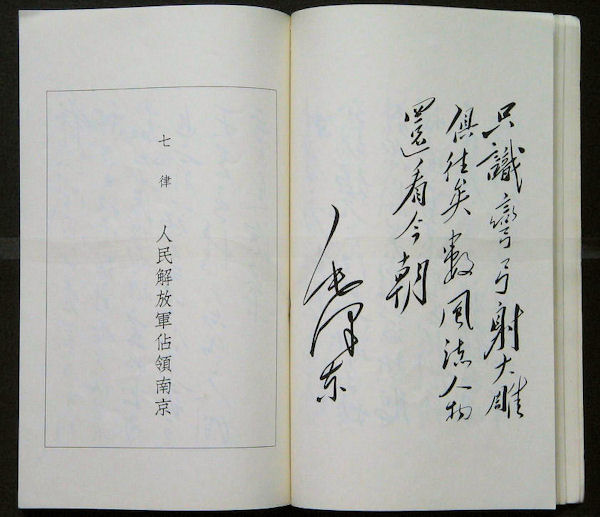 只識彎弓射大雕
俱往矣數風流人物
還看今朝
毛澤東
七律
人民解放軍佔領南京